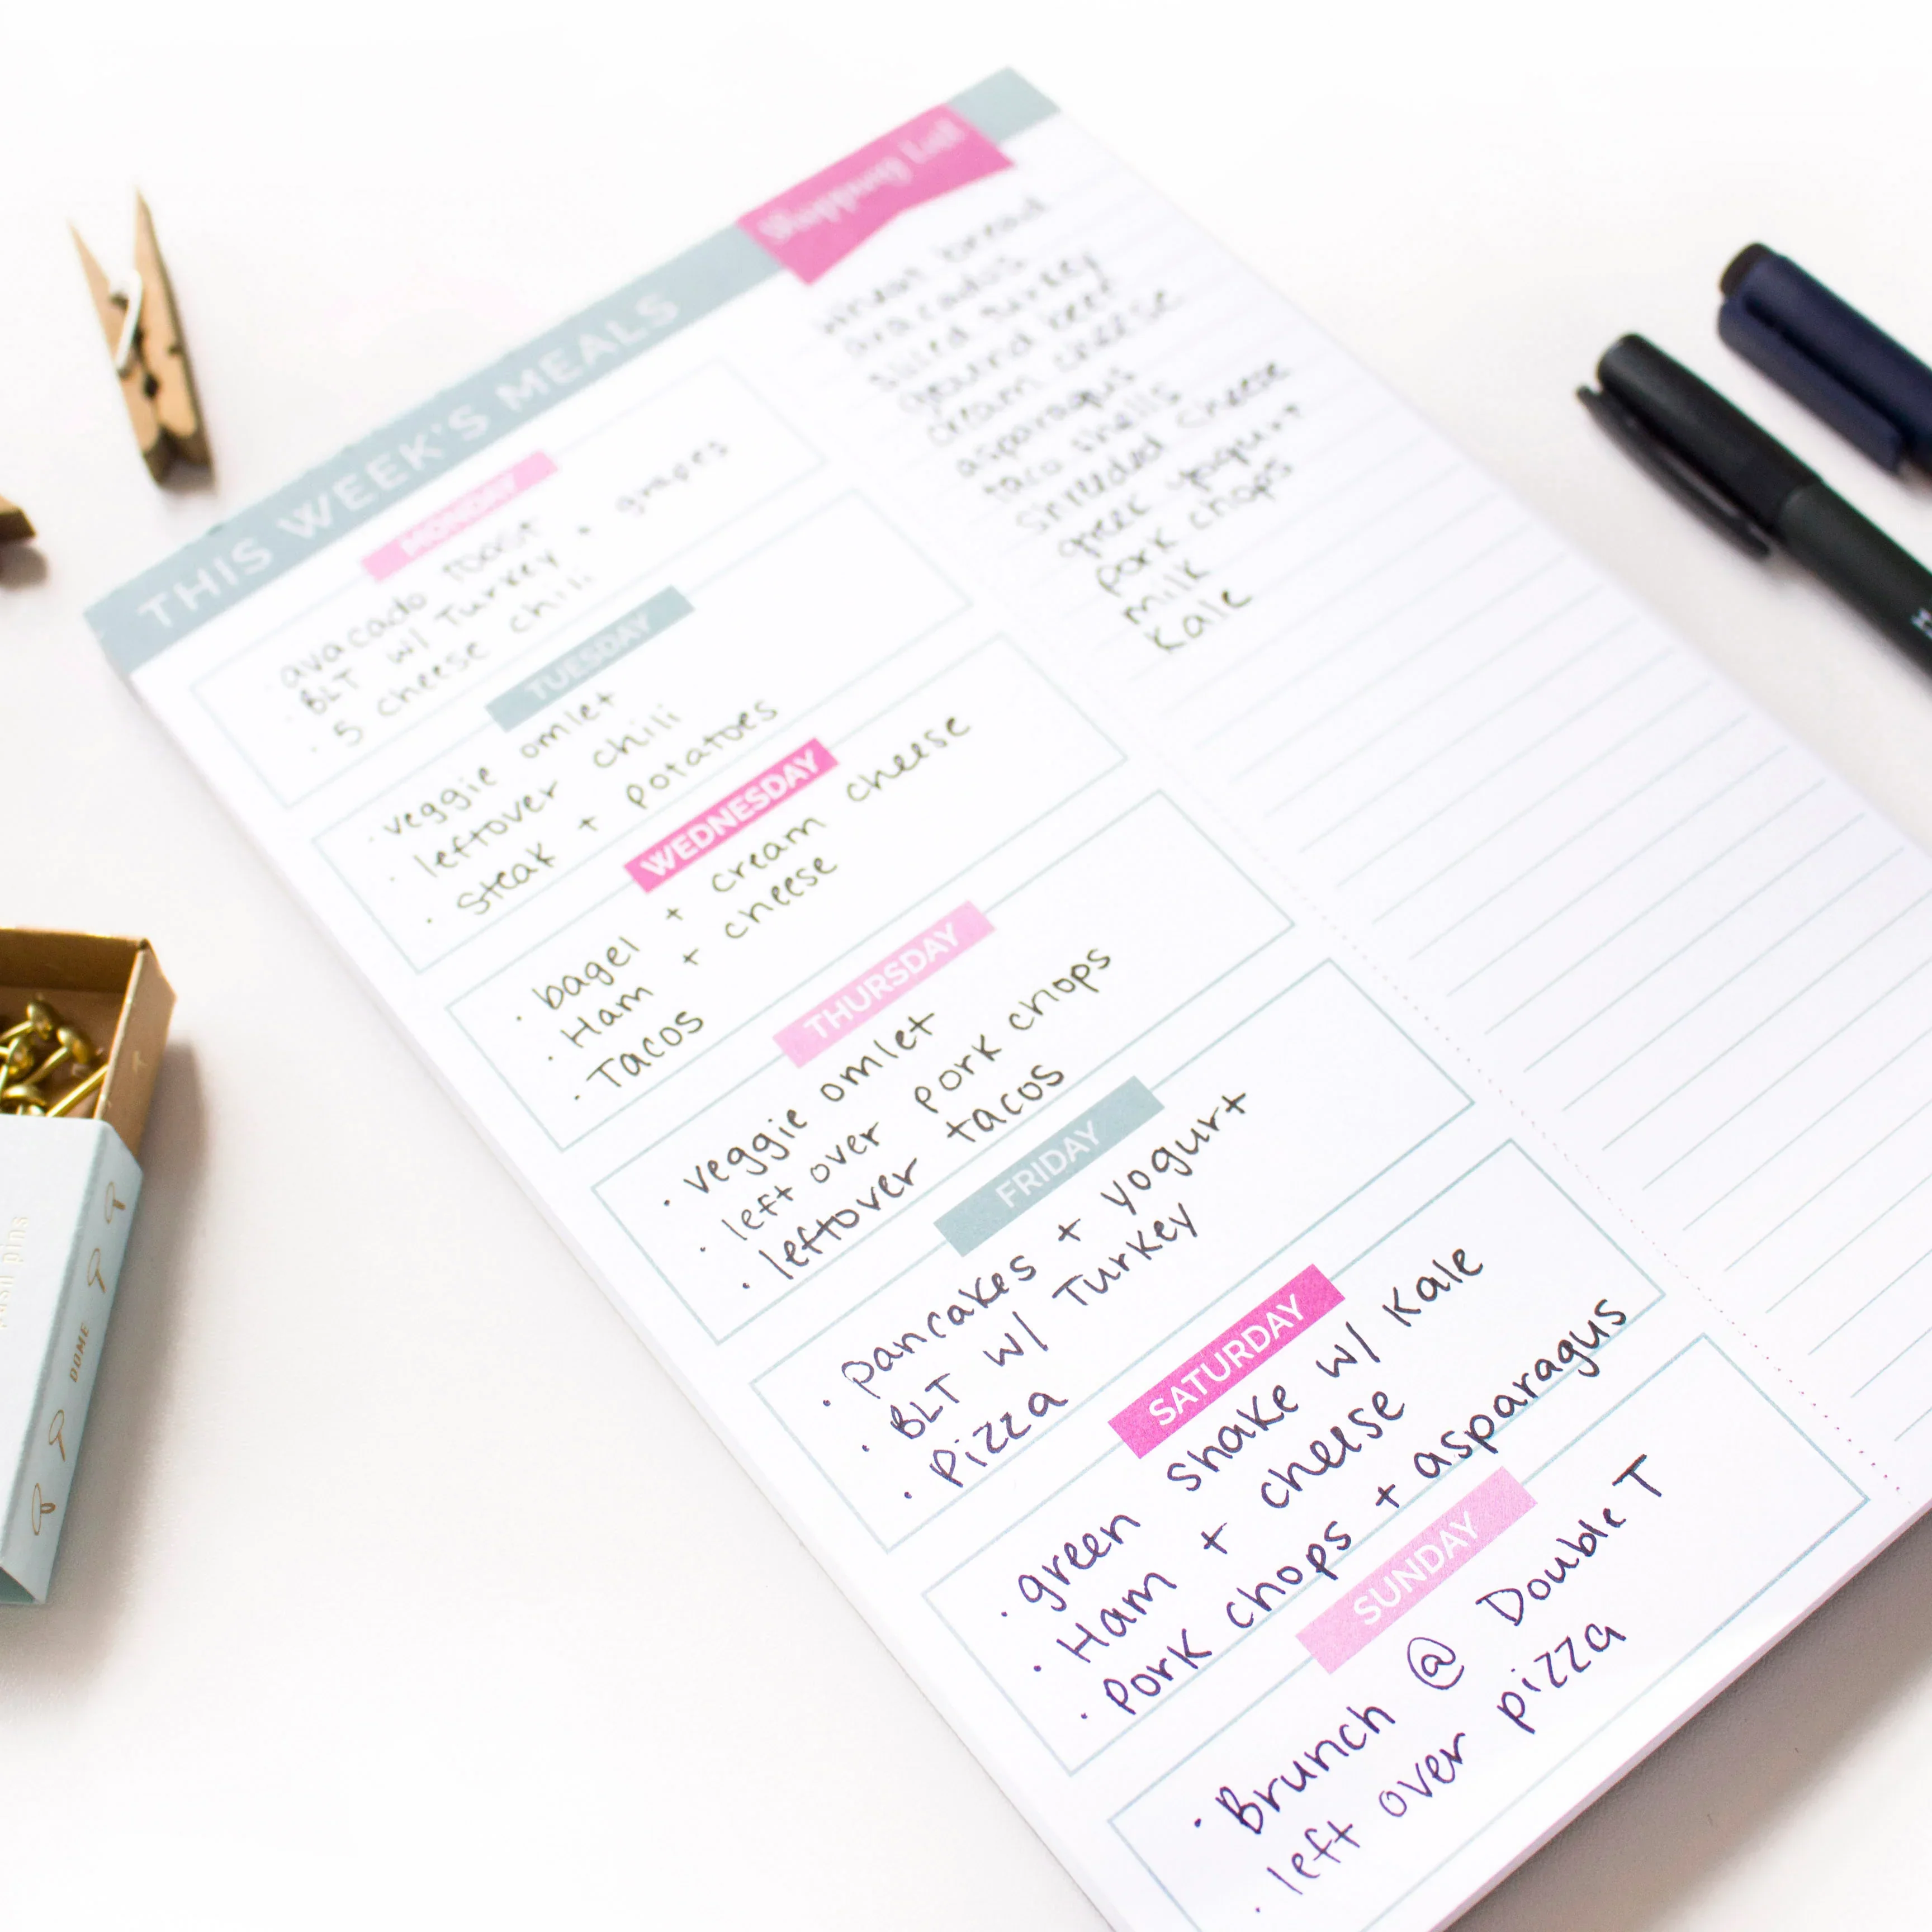 THIS WEEK'S MEALS
MONDAY
· avacado toast
· BLT w/ Turkey + grapes
· 5 cheese chili
TUESDAY
· veggie omlet
· leftover chili
· steak + potatoes
WEDNESDAY
· bagel + cream cheese
· Ham + cheese
· Tacos
THURSDAY
· veggie omlet
· left over pork chops
· leftover tacos
FRIDAY
· pancakes + yogurt
· BLT w/ Turkey
· Pizza
SATURDAY
· green shake w/ Kale
· Ham + cheese
· Pork chops + asparagus
SUNDAY
· Brunch @ Double T
· left over pizza
Shopping List
bread
avacados
sliced turkey
ground beef
cream cheese
asparagus
taco shells
shredded cheese
greek yogurt
pork chops
milk
Kale
DOME